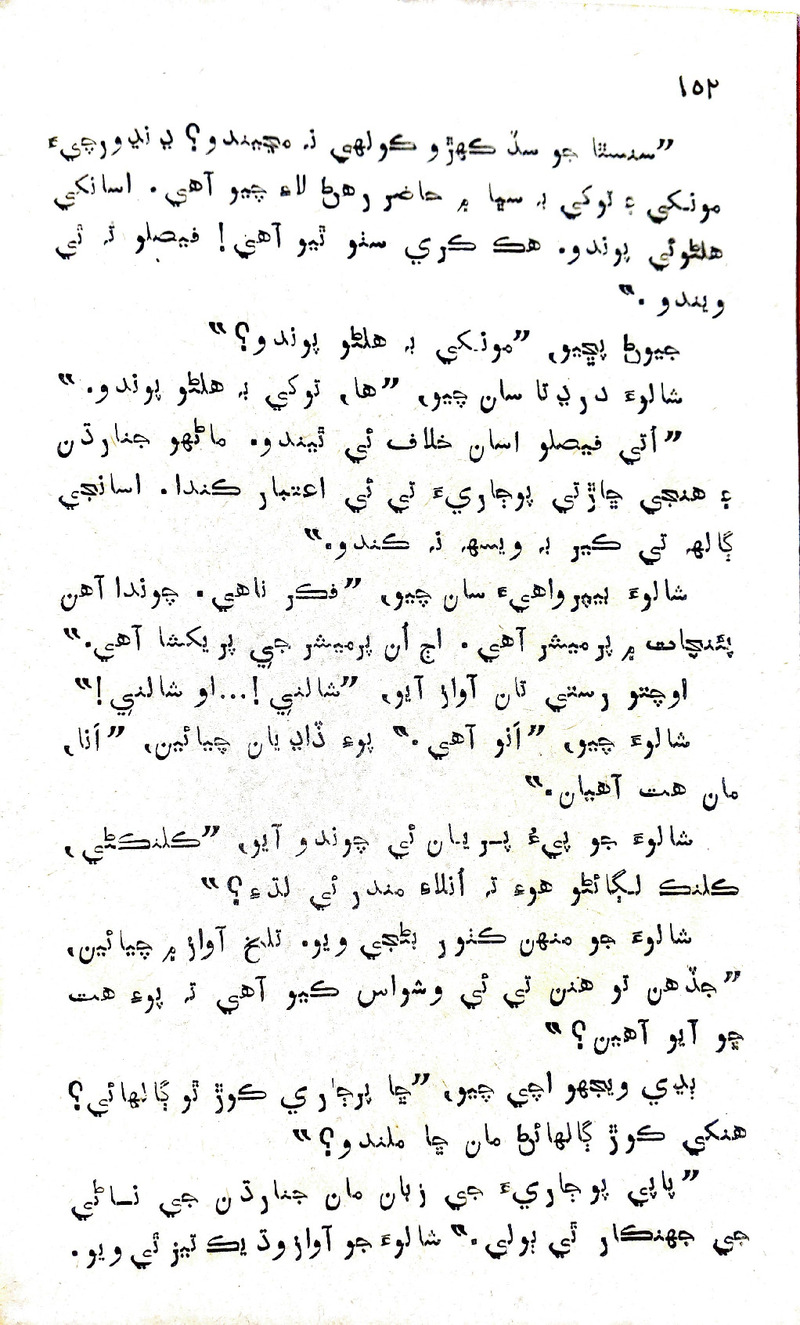 ۱۵۲
”سنسٿا جو سڏ ڪهڙو ڪولهي نہ مڃيندو؟ ڍنڍورچيءَ
مونکي ۽ توکي بہ سڀا ۾ حاضر رهڻ لاءِ چيو آهي. اسانکي
هلڻوئي پوندو. هڪ ڪري سٺو ٿيو آهي! فيصلو تہ ٿي
ويندو.“
جيوڻ پڇيو، ”مونکي بہ هلڻو پوندو؟“
شالوءَ درڍتا سان چيو، ”ها، توکي بہ هلڻو پوندو.“
”اُتي فيصلو اسان خلاف ئي ٿيندو. ماڻهو جنارڌن
۽ هنجي چاڙتي پوڄاريءَ تي ئي اعتبار ڪندا. اسانجي
ڳالهہ تي ڪير بہ ويسهہ نہ ڪندو.“
شالوءَ بيپرواهيءَ سان چيو، ”فڪر ناهي. چوندا آهن
پئنچات ۾ پرميشر آهي. اڄ اُن پرميشر جي پريکشا آهي.“
اوچتو رستي تان آواز آيو، ”شالني!...او شالني!“
شالوءَ چيو، ”اَنو آهي.“ پوءِ ڏاڍيان چيائين، ”اَنا،
مان هت آهيان.“
شالوءَ جو پيءُ پريان ئي چوندو آيو، ”ڪلنڪڻي،
ڪلنڪ لڳائڻو هوءِ تہ اُنلاءِ مندر ئي لڌءِ؟“
شالوءَ جو منهن ڪٺور بڻجي ويو. تلخ آواز ۾ چيائين،
”جڏهن تو هنن تي ئي وشواس ڪيو آهي تہ پوءِ هت
ڇو آيو آهين؟“
ٻڍي ويجهو اچي چيو، ”ڇا پوڄاري ڪوڙ ٿو ڳالهائي؟
هنکي ڪوڙ ڳالهائڻ مان ڇا ملندو؟“
”پاپي پوڄاريءَ جي زبان مان جنارڌن جي ناڻي
جي جهنڪار ٿي ٻولي.“ شالوءَ جو آواز وڌيڪ تيز ٿي ويو.